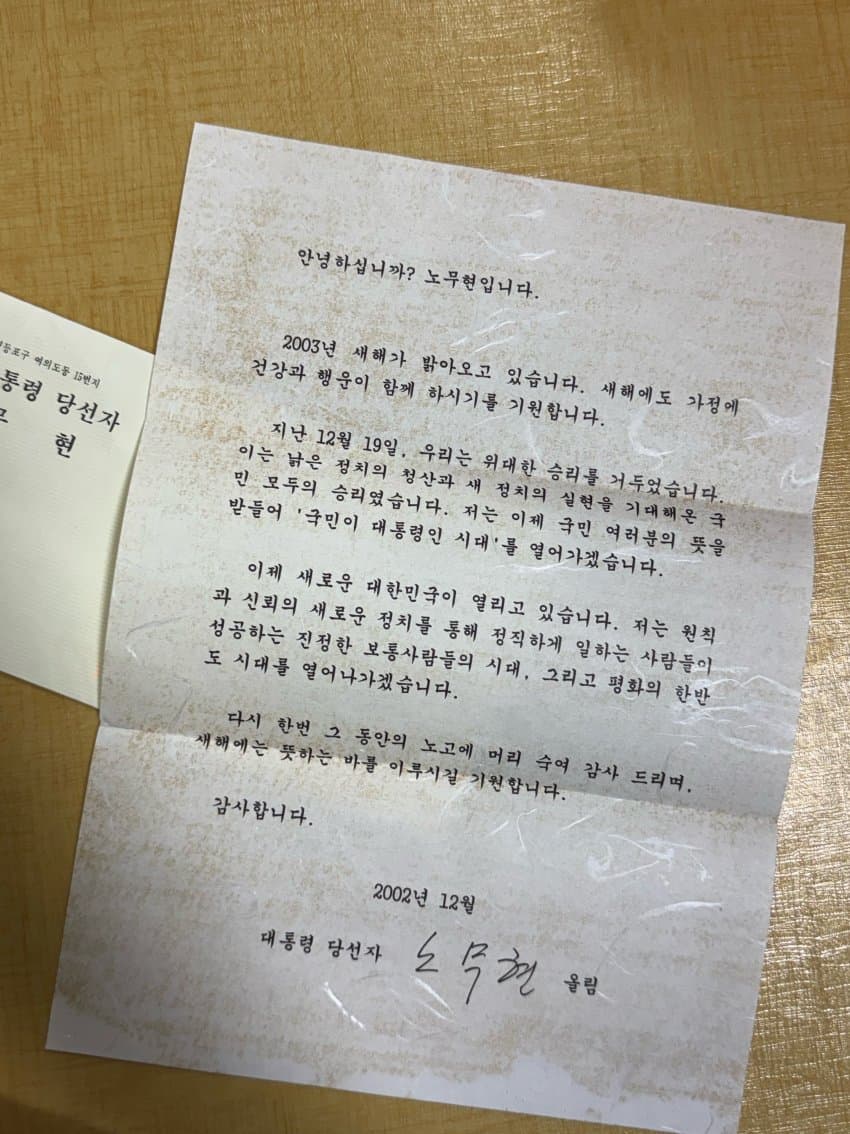 여의도동 15번지
당선자
현
안녕하십니까? 노무현입니다.
2003년 새해가 밝아오고 있습니다. 새해에도 가정에
건강과 행운이 함께 하시기를 기원합니다.
지난 12월 19일, 우리는 위대한 승리를 거두었습니다.
이는 낡은 정치의 청산과 새 정치의 실현을 기대해온 국
민 모두의 승리였습니다. 저는 이제 국민 여러분의 뜻을
받들어 '국민이 대통령인 시대'를 열어가겠습니다.
이제 새로운 대한민국이 열리고 있습니다. 저는 원칙
과 신뢰의 새로운 정치를 통해 정직하게 일하는 사람들이
성공하는 진정한 보통사람들의 시대, 그리고 평화의 한반
도 시대를 열어나가겠습니다.
다시 한번 그 동안의 노고에 머리 숙여 감사 드리며,
새해에는 뜻하는 바를 이루시길 기원합니다.
감사합니다.
2002년 12월
대통령 당선자 노무현 올림